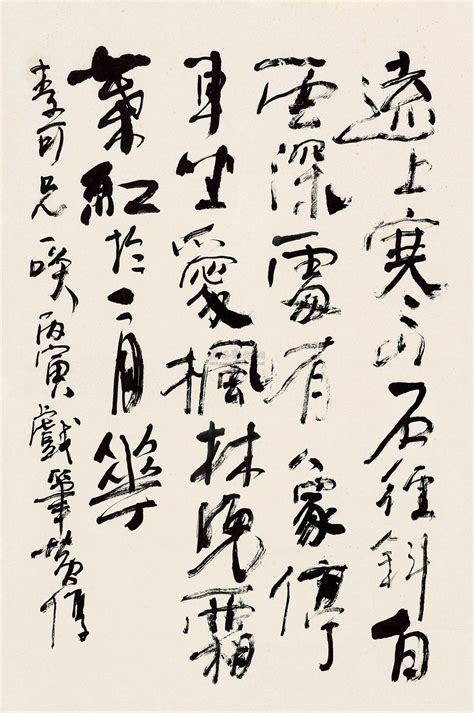 遠上寒山石徑斜白
雲深處有人家停
車坐愛楓林晚霜
葉紅於二月華
李可兄一咲丙寅戲筆黃